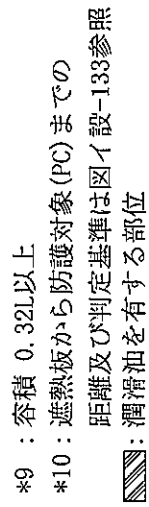 *9 : 容積 0.32L以上
*10 : 遮熱板から防護対象(PC)までの
距離及び判定基準は図イ設-133参照
: 潤滑油を有する部位